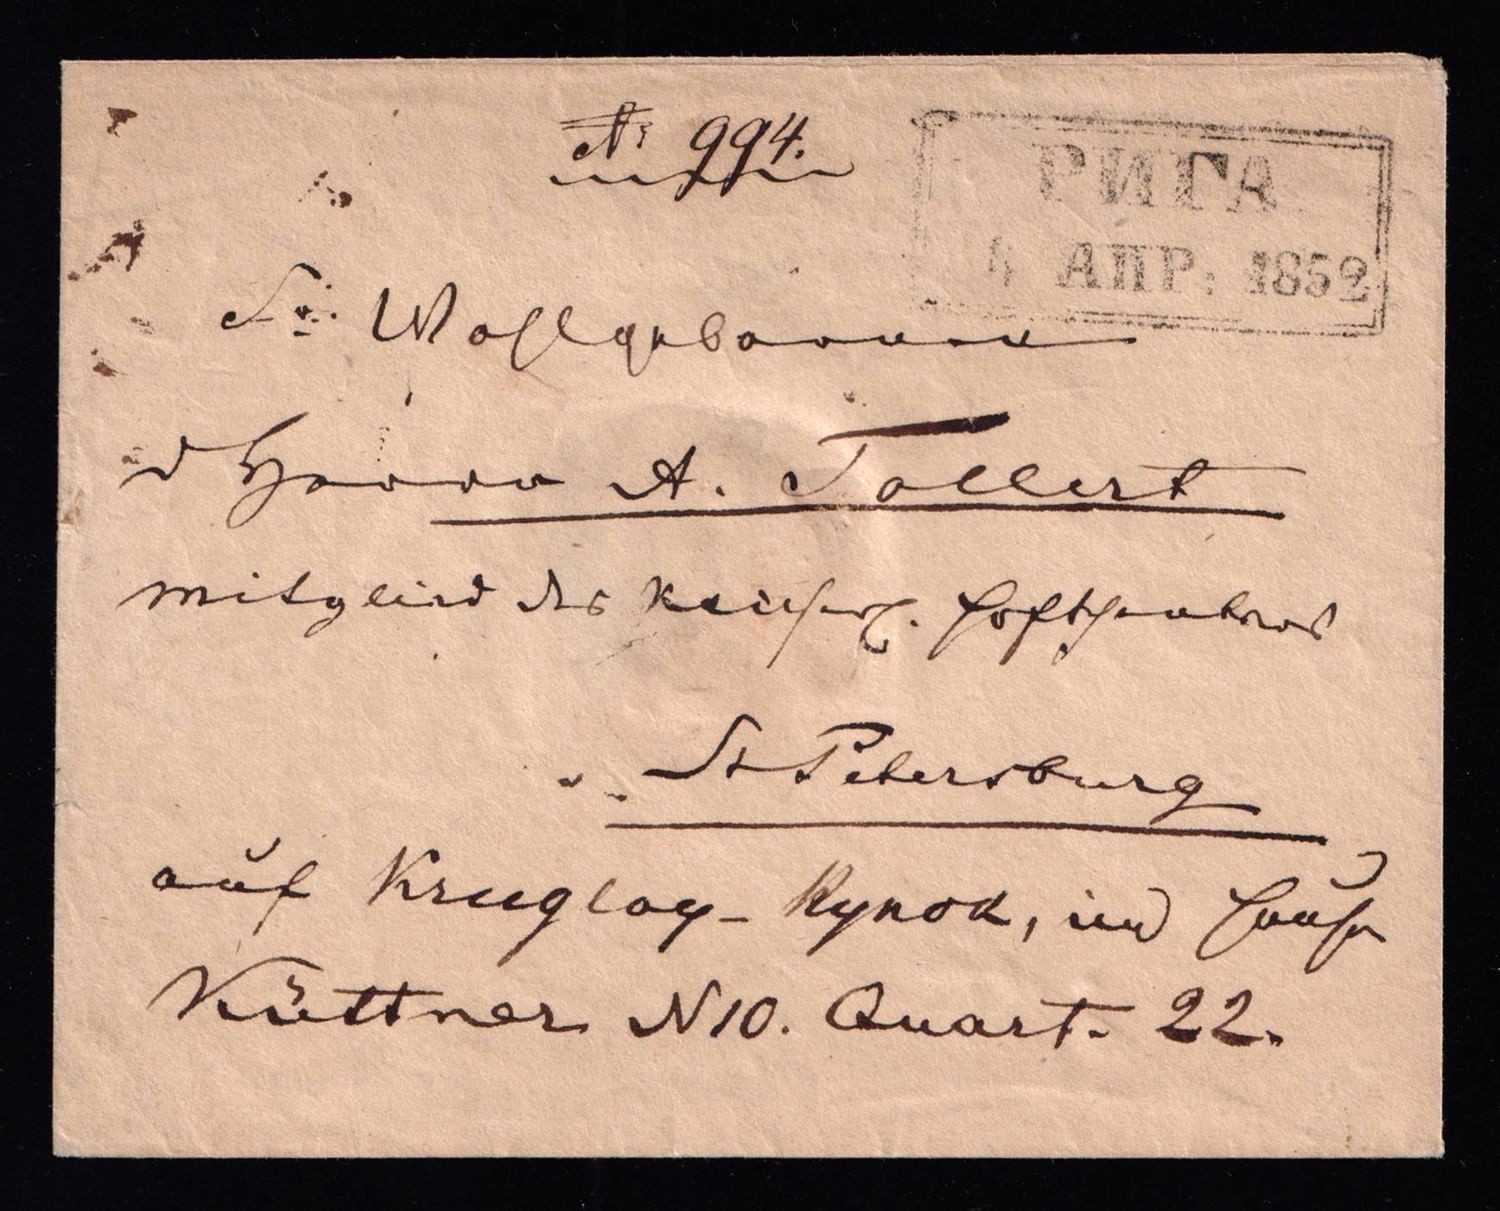 № 994.
РИГА
4 АПР: 1852
Sr Wohlgeboren
d Herrn A. Tollert
mitglied des Kaiserl. Hoftheaters
St Petersburg
auf Kruglay-Rynok, im Hause
Küttner N 10. Quart. 22.